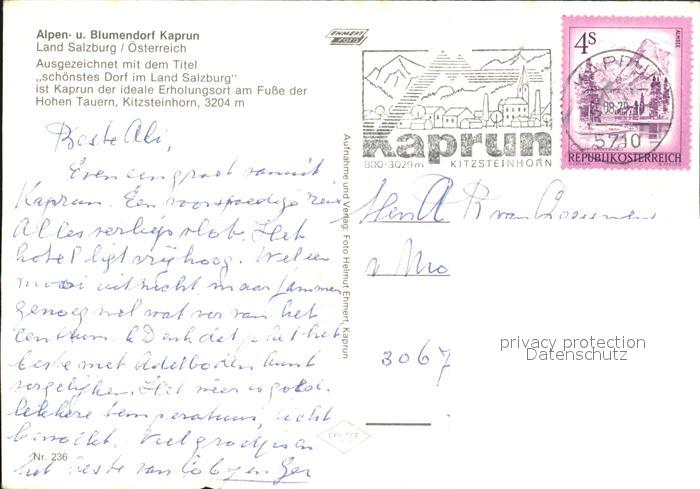 Alpen- u. Blumendorf Kaprun
Land Salzburg / Österreich
Ausgezeichnet mit dem Titel
„schönstes Dorf im Land Salzburg"
ist Kaprun der ideale Erholungsort am Fuße der
Hohen Tauern, Kitzsteinhorn, 3204 m
EHMERT
FOTO
4s
ALMSEE
5710
REPUBLIK ÖSTERREICH
Kaprun
800-3029m KITZSTEINHORN
Beste Ali,
Even een groet vanuit
Kaprun. Een voorspoedige reis
Alles verliep vlot. Het
hotel ligt vrij hoog. Wel een
mooi uitzicht maar jammer
genoeg wel wat ver van het
centrum. Denk dat je het het
beste met Adelboden kunt
vergelijken. Het weer is goed.
lekkere temperatuur, licht
bewolkt. Veel groetjes en
het beste van Coby en Ger
Aufnahme und Verlag: Foto Helmut Ehmert, Kaprun
van
3067
privacy protection
Datenschutz
Nr. 236